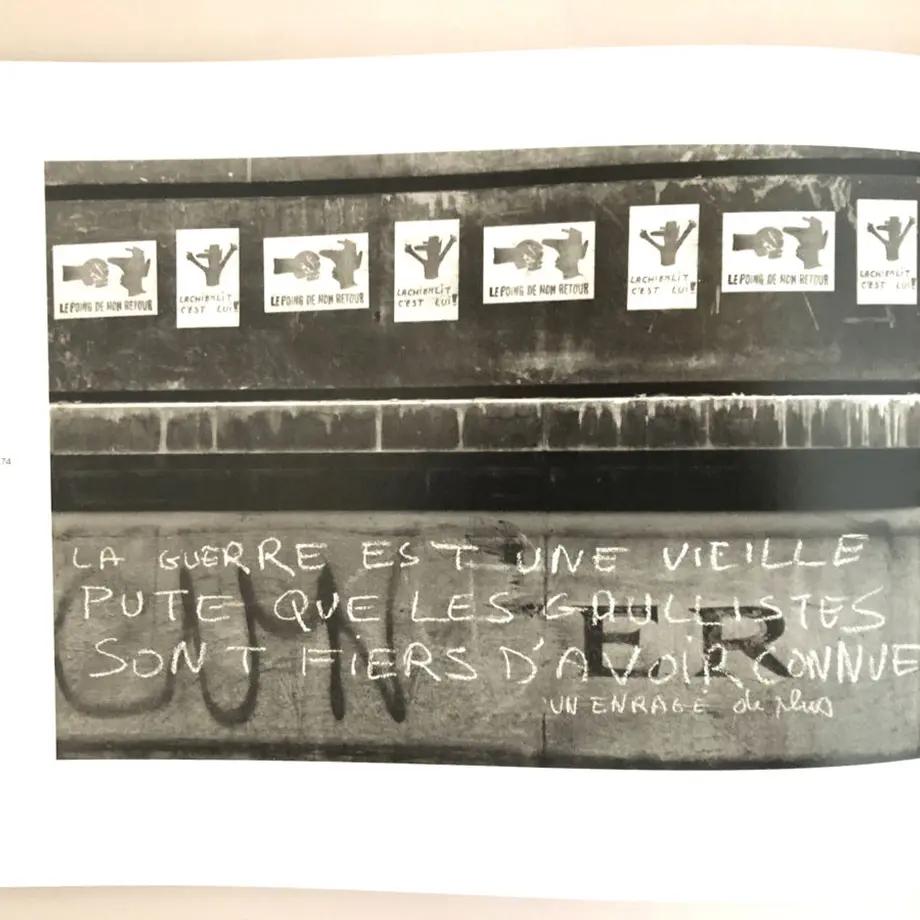 LE POING DE NON RETOUR
LACHIENLIT
C'EST LUI!
LE POING DE NON RETOUR
LACHIENLIT
C'EST LUI!
LE POING DE NON RETOUR
LACHIENLIT
C'EST LUI!
LE POING DE NON RETOUR
LACHIENLIT
C'EST LUI!
74
LA GUERRE EST UNE VIEILLE
PUTE QUE LES GAULLISTES
SONT FIERS D'AVOIR CONNUE
ER
UN ENRAGÉ de plus